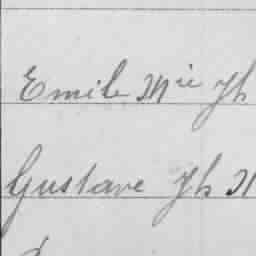 Emile Mie Jh
Gustave Jh N